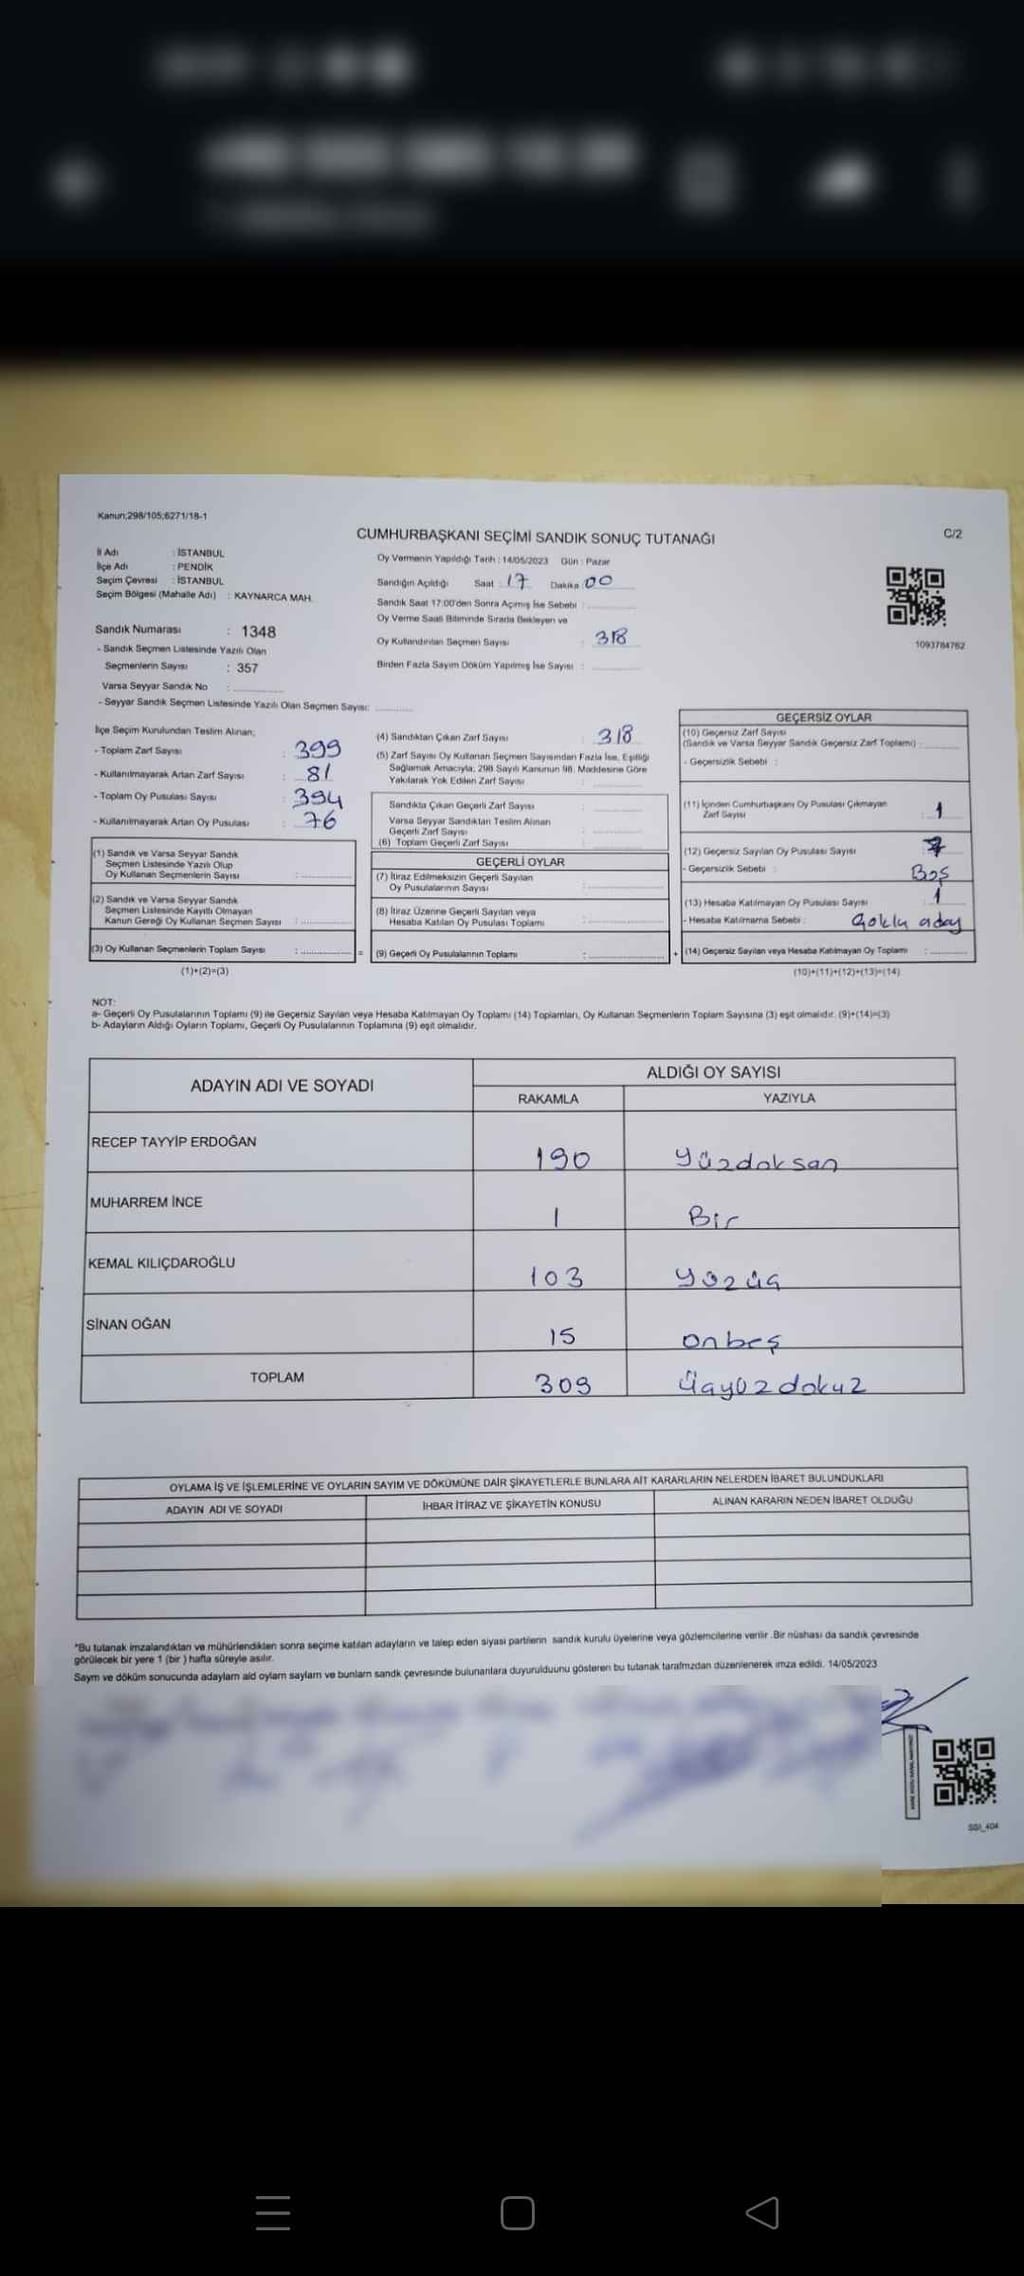 Kanun;298/105;6271/18-1
CUMHURBAŞKANI SEÇİMİ SANDIK SONUÇ TUTANAĞI
C/2
İl Adı : İSTANBUL
İlçe Adı : PENDİK
Seçim Çevresi : İSTANBUL
Seçim Bölgesi (Mahalle Adı) : KAYNARCA MAH.
Sandık Numarası : 1348
- Sandık Seçmen Listesinde Yazılı Olan
Seçmenlerin Sayısı : 357
Varsa Seyyar Sandık No :
- Seyyar Sandık Seçmen Listesinde Yazılı Olan Seçmen Sayısı:
Oy Vermenin Yapıldığı Tarih : 14/05/2023 Gün : Pazar
Sandığın Açıldığı Saat : 17 Dakika : 00
Sandık Saat 17:00'den Sonra Açılmış İse Sebebi :
Oy Verme Saati Bitiminde Sırada Bekleyen ve
Oy Kullandırılan Seçmen Sayısı : 318
Birden Fazla Sayım Döküm Yapılmış İse Sayısı :
1093784762
İlçe Seçim Kurulundan Teslim Alınan;
- Toplam Zarf Sayısı : 399
- Kullanılmayarak Artan Zarf Sayısı : 81
- Toplam Oy Pusulası Sayısı : 394
- Kullanılmayarak Artan Oy Pusulası : 76
(1) Sandık ve Varsa Seyyar Sandık
Seçmen Listesinde Yazılı Olup
Oy Kullanan Seçmenlerin Sayısı :
(2) Sandık ve Varsa Seyyar Sandık
Seçmen Listesinde Kayıtlı Olmayan
Kanun Gereği Oy Kullanan Seçmen Sayısı :
(3) Oy Kullanan Seçmenlerin Toplam Sayısı : =
(1)+(2)=(3)
(4) Sandıktan Çıkan Zarf Sayısı : 318
(5) Zarf Sayısı Oy Kullanan Seçmen Sayısından Fazla İse, Eşitliği
Sağlamak Amacıyla, 298 Sayılı Kanunun 98. Maddesine Göre
Yakılarak Yok Edilen Zarf Sayısı :
Sandıkta Çıkan Geçerli Zarf Sayısı :
Varsa Seyyar Sandıktan Teslim Alınan
Geçerli Zarf Sayısı :
(6) Toplam Geçerli Zarf Sayısı :
GEÇERLİ OYLAR
(7) İtiraz Edilmeksizin Geçerli Sayılan
Oy Pusulalarının Sayısı :
(8) İtiraz Üzerine Geçerli Sayılan veya
Hesaba Katılan Oy Pusulası Toplamı :
(9) Geçerli Oy Pusulalarının Toplamı : +
GEÇERSİZ OYLAR
(10) Geçersiz Zarf Sayısı
(Sandık ve Varsa Seyyar Sandık Geçersiz Zarf Toplamı) :
- Geçersizlik Sebebi :
(11) İçinden Cumhurbaşkanı Oy Pusulası Çıkmayan
Zarf Sayısı : 1
(12) Geçersiz Sayılan Oy Pusulası Sayısı : 7
- Geçersizlik Sebebi : Boş
(13) Hesaba Katılmayan Oy Pusulası Sayısı : 1
- Hesaba Katılmama Sebebi : Çoklu aday
(14) Geçersiz Sayılan veya Hesaba Katılmayan Oy Toplamı :
(10)+(11)+(12)+(13)=(14)
NOT:
a- Geçerli Oy Pusulalarının Toplamı (9) ile Geçersiz Sayılan veya Hesaba Katılmayan Oy Toplamı (14) Toplamları, Oy Kullanan Seçmenlerin Toplam Sayısına (3) eşit olmalıdır. (9)+(14)=(3)
b- Adayların Aldığı Oyların Toplamı, Geçerli Oy Pusulalarının Toplamına (9) eşit olmalıdır.
ADAYIN ADI VE SOYADI
ALDIĞI OY SAYISI
RAKAMLA YAZIYLA
RECEP TAYYİP ERDOĞAN 190 Yüzdoksan
MUHARREM İNCE 1 Bir
KEMAL KILIÇDAROĞLU 103 Yüzüç
SİNAN OĞAN 15 onbeş
TOPLAM 309 Üçyüzdokuz
OYLAMA İŞ VE İŞLEMLERİNE VE OYLARIN SAYIM VE DÖKÜMÜNE DAİR ŞİKAYETLERLE BUNLARA AİT KARARLARIN NELERDEN İBARET BULUNDUKLARI
ADAYIN ADI VE SOYADI İHBAR İTİRAZ VE ŞİKAYETİN KONUSU ALINAN KARARIN NEDEN İBARET OLDUĞU
*Bu tutanak imzalandıktan ve mühürlendikten sonra seçime katılan adayların ve talep eden siyasi partilerin sandık kurulu üyelerine veya gözlemcilerine verilir .Bir nüshası da sandık çevresinde
görülecek bir yere 1 (bir ) hafta süreyle asılır.
Sayım ve döküm sonucunda adayların ald oyların saylarn ve bunların sandk çevresinde bulunanlara duyurulduunu gösteren bu tutanak tarafmzdan düzenlenerek imza edildi. 14/05/2023
SSI_404